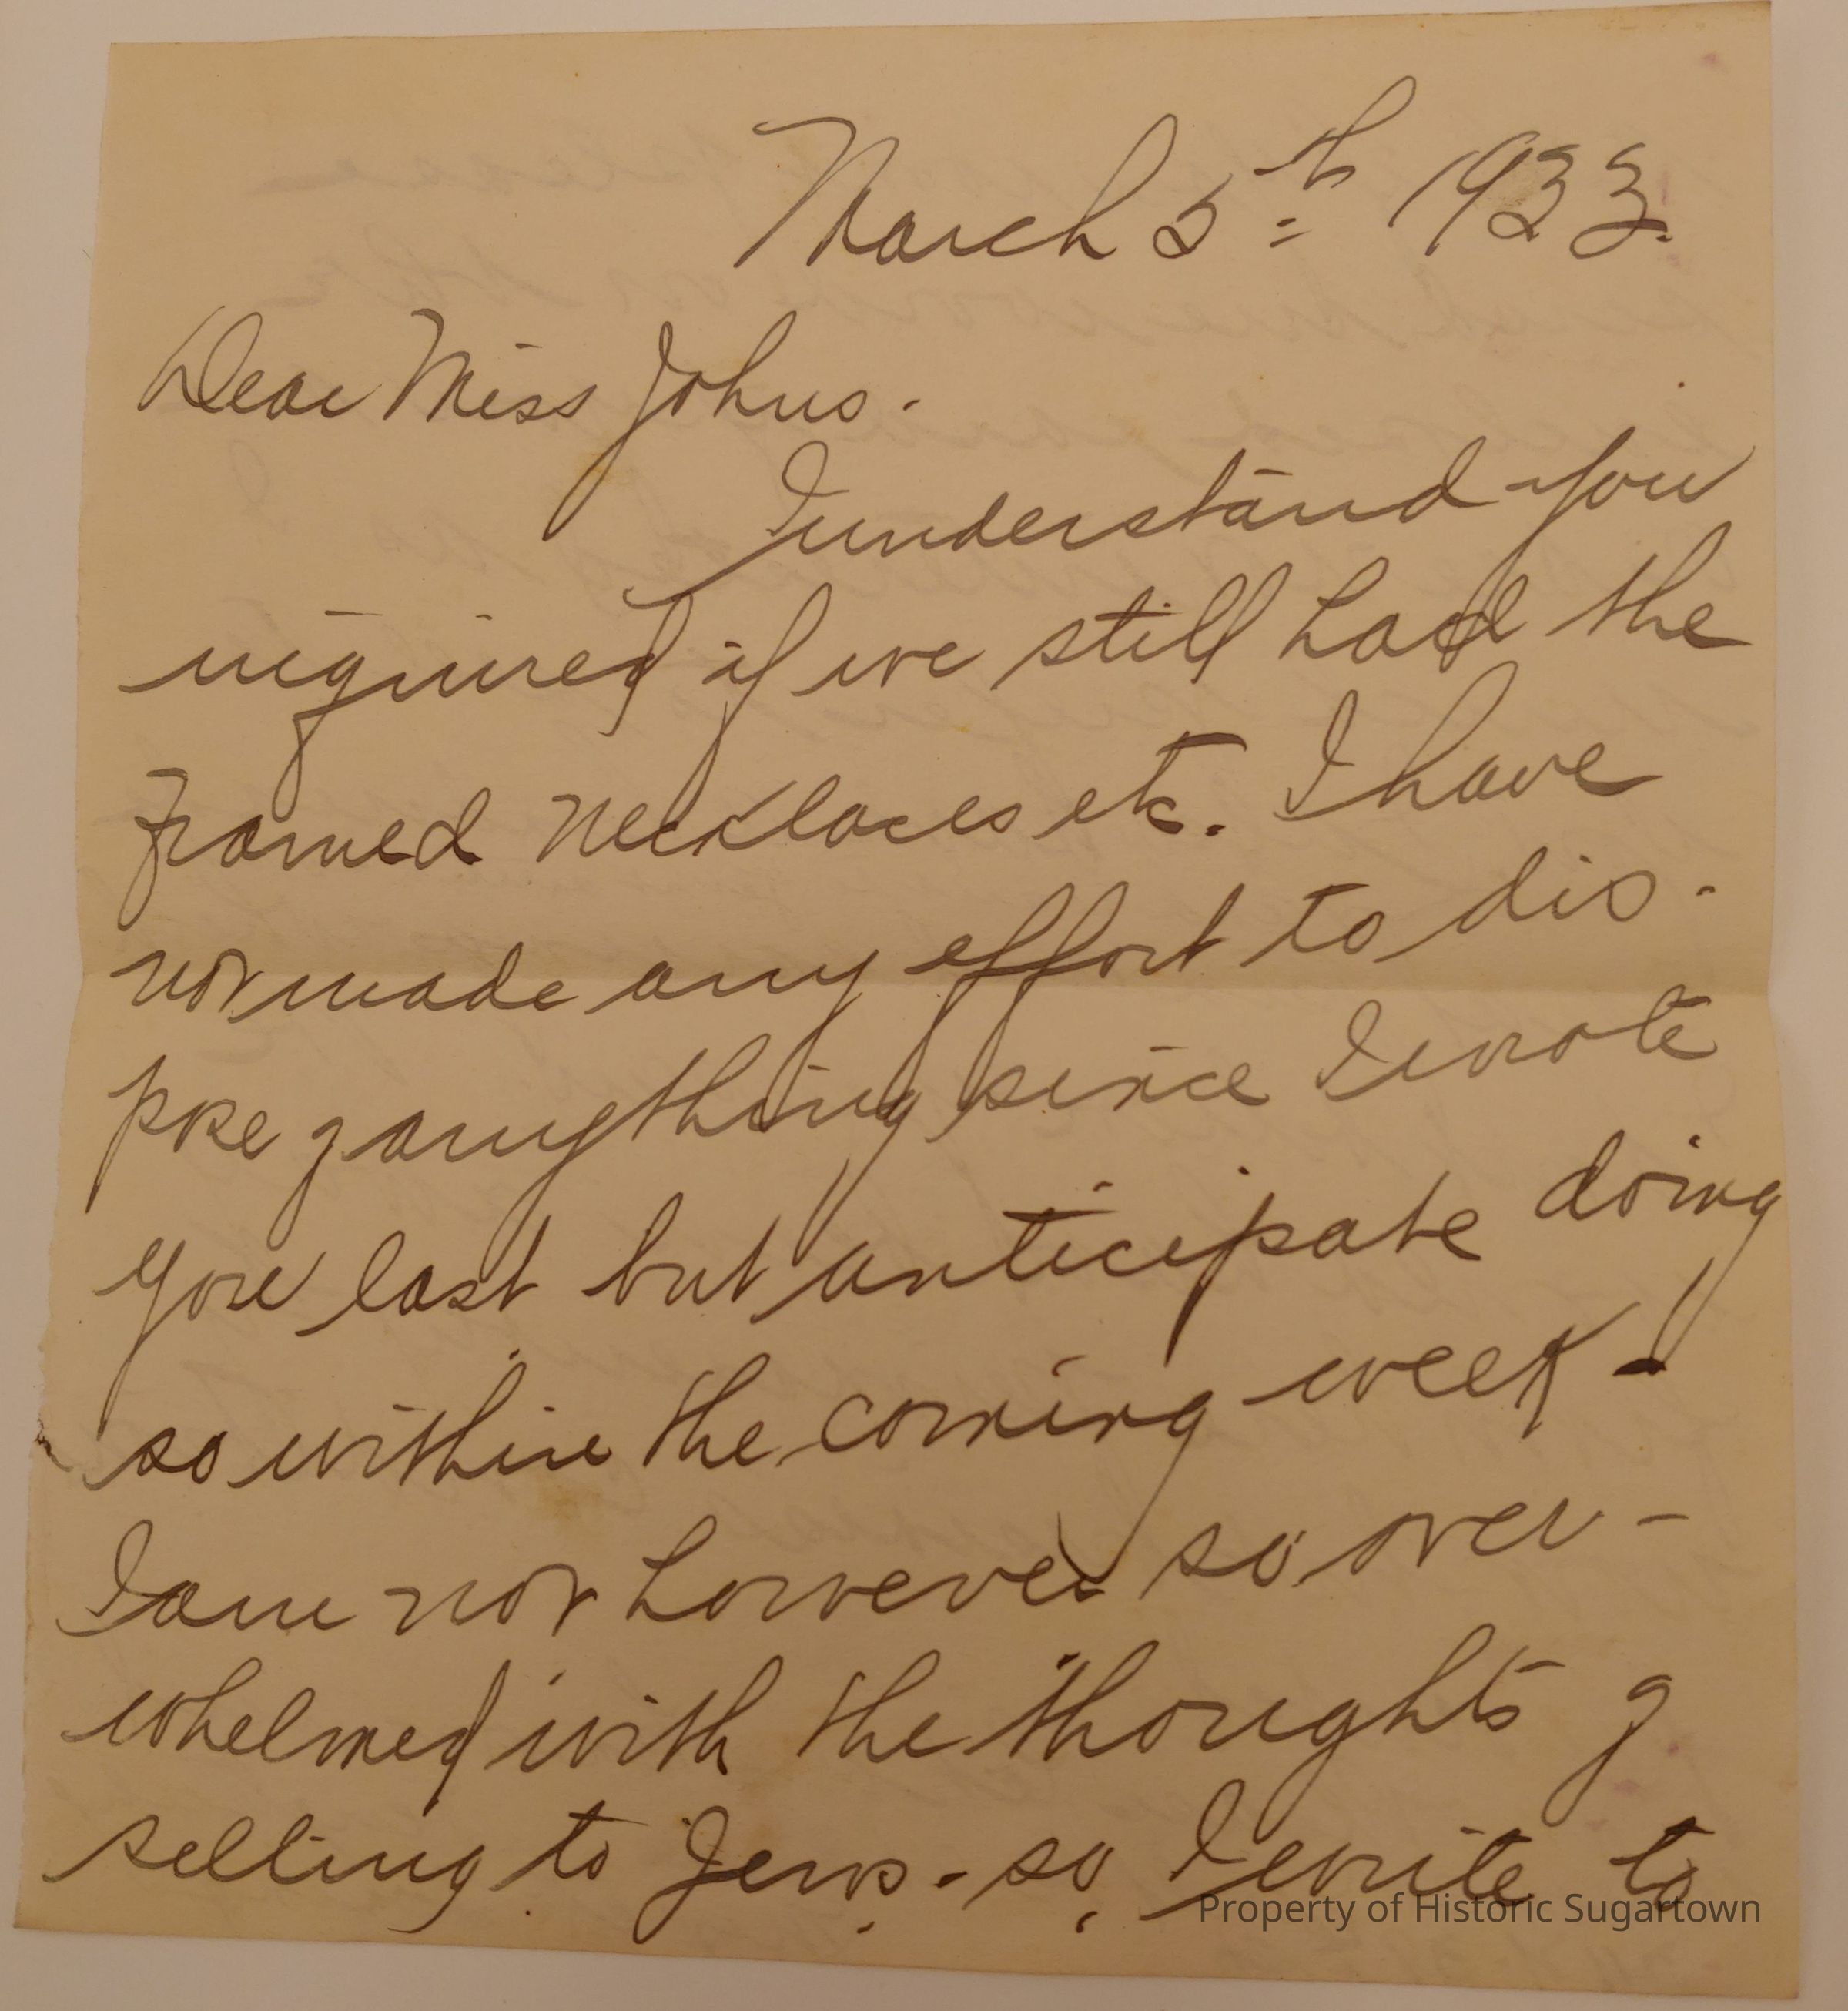 March 5th 1933.
Dear Miss Johns.
I understand you
inquired if we still had the
Framed Necklaces etc. I have
not made any effort to dis-
pose of anything since I wrote
you last but anticipate doing
so within the coming week -
I am not however so over-
whelmed with the thoughts of
selling to Jews - so I write to
Property of Historic Sugartown